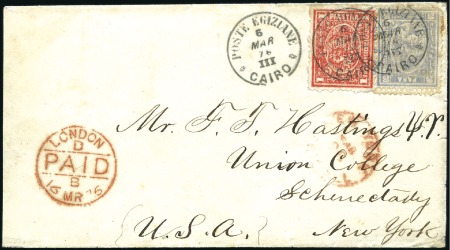 POSTE EGIZIANE
6
MAR
76
III
CAIRO
POSTE EGIZIANE
6
MAR
76
III
CAIRO
LONDON
D
PAID
8
16 MR 76
Mr. F. T. Hastings
Union College
Schenectady
(U.S.A.) New York